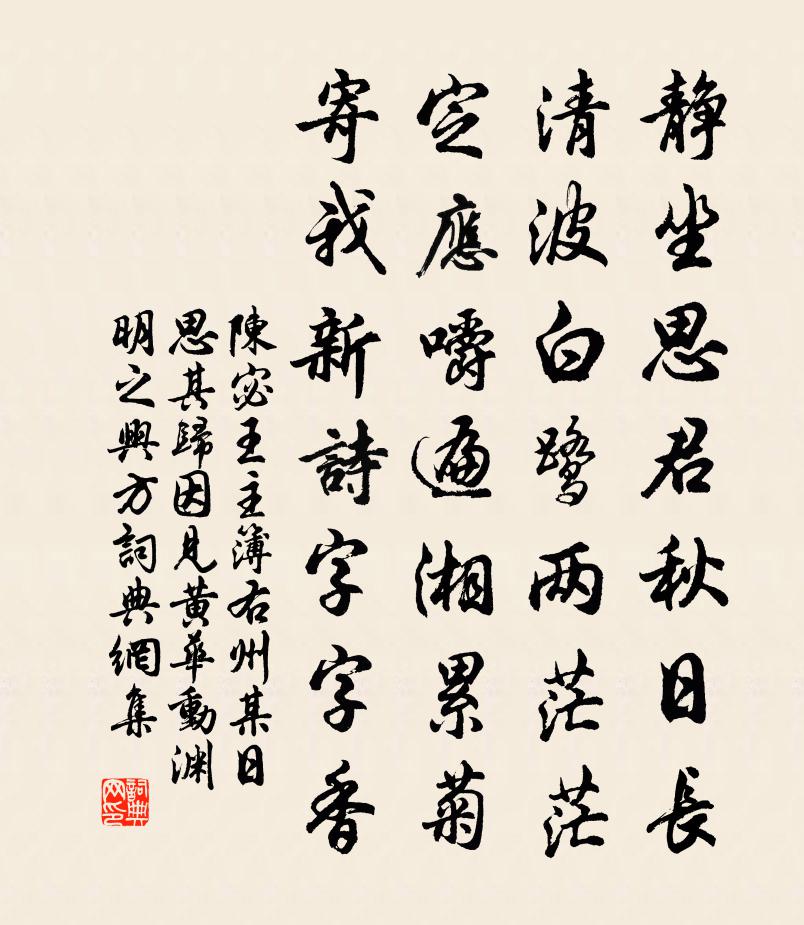 静坐思君秋日長
清波白鹭两茫茫
定應嚼遍湘累菊
寄我新詩字字香
陳宓王主簿右州某日
思其歸因見黄華動渊
明之興方詞典網集
詞典网印